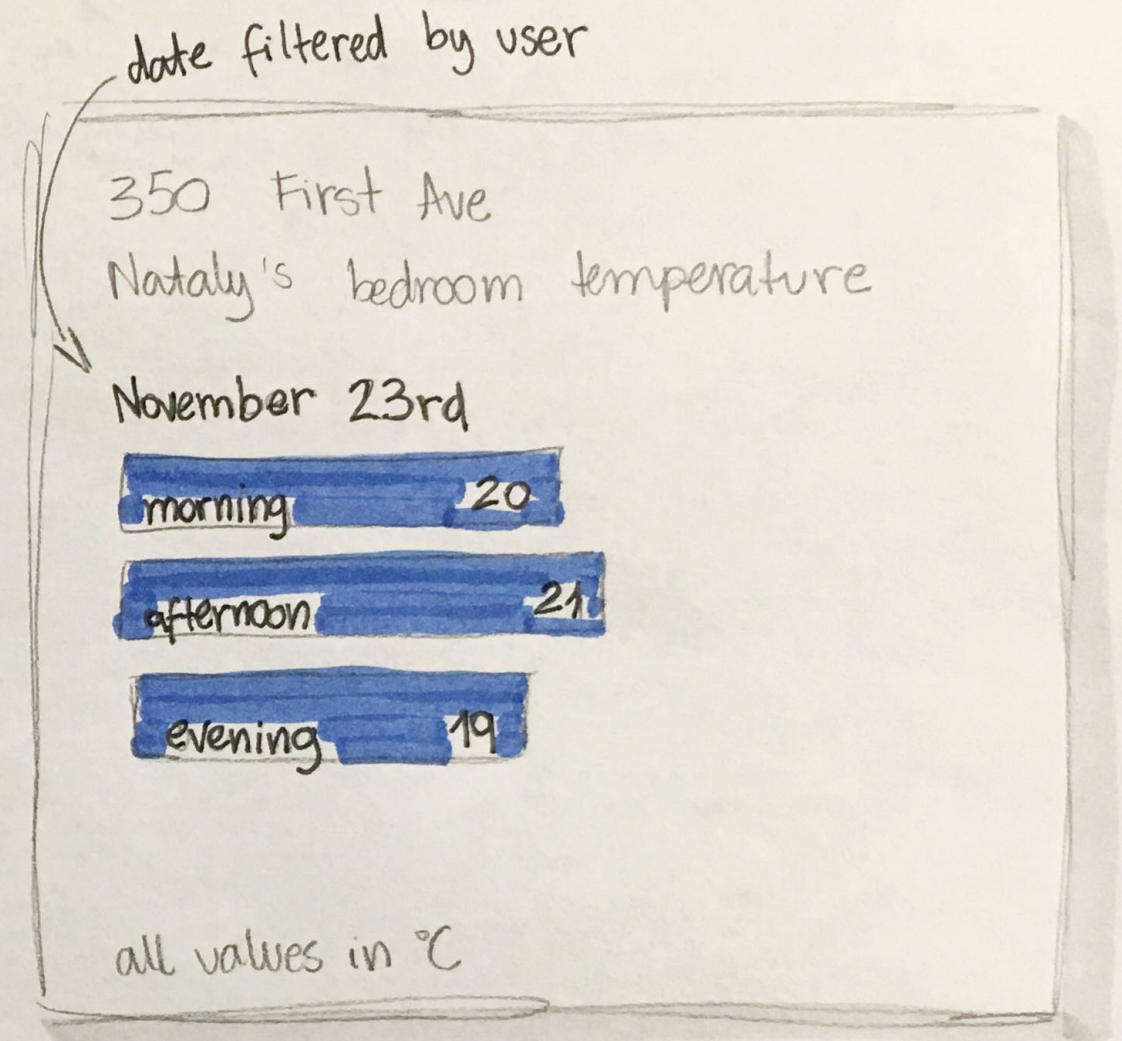 date filtered by user
350 First Ave
Nataly's bedroom temperature
November 23rd
morning 20
afternoon 21
evening 19
all values in °C